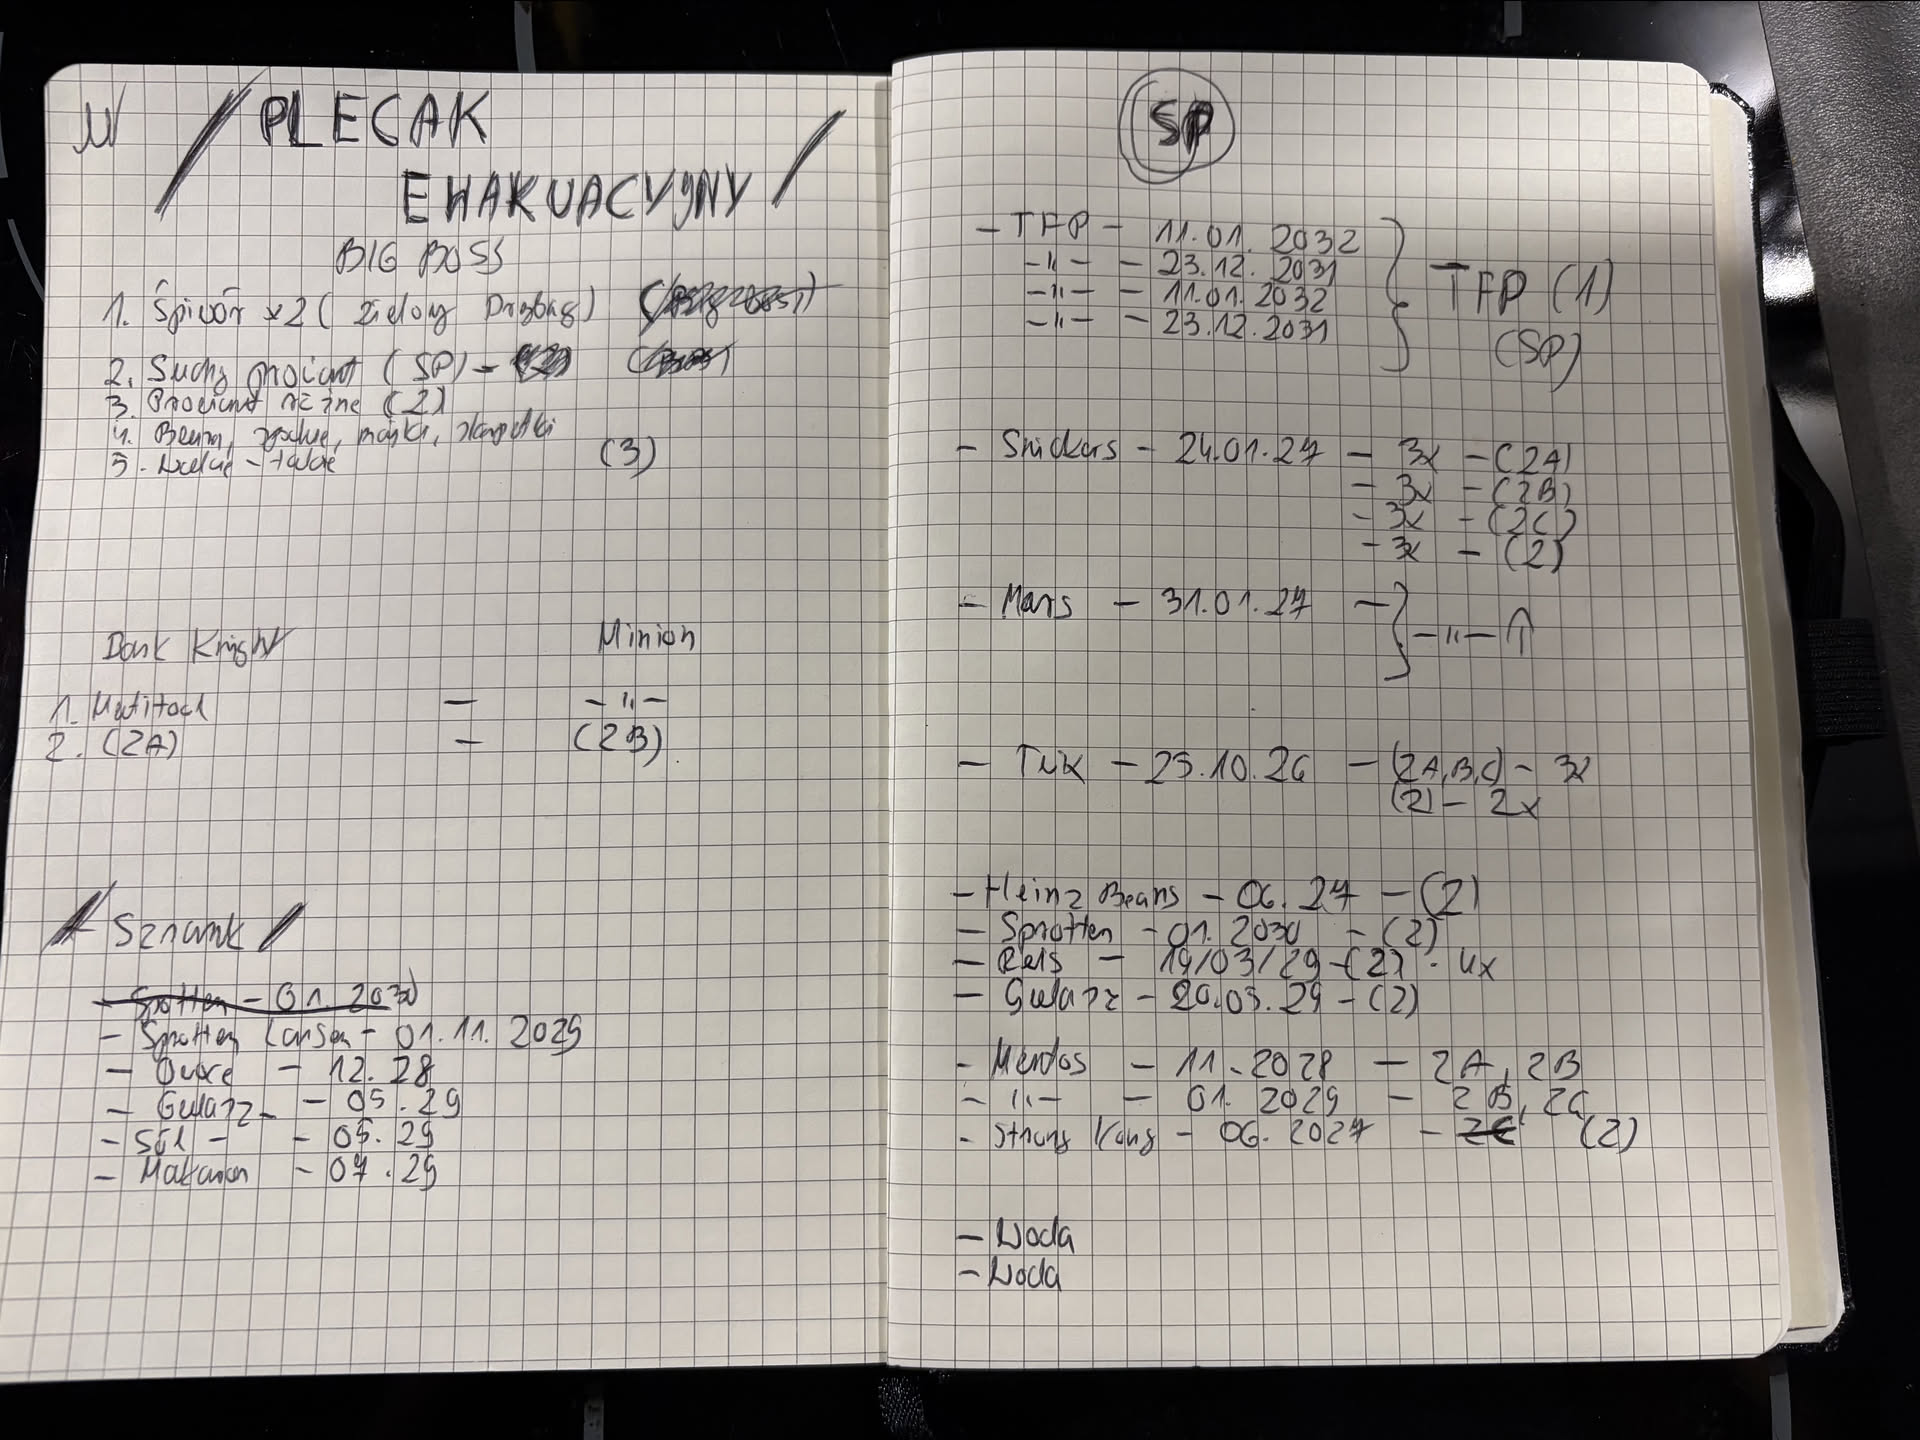 PLECAK
EWAKUACYJNY
BIG BOSS
1. Śpiwór x2 ( zielony Drybag)
2. Suchy prowiant (SP) -
3. Prowiant różne (2)
4. majtki, skarpetki
5. (3)
Dark Knight Minion
1. - -"-
2. (2A) - (2B)
Schrank
- Sprotten - 01. 2030
- Sprotten - 01.11. 2029
- - 12.28
- Gulasz - 05.29
- Sól - - 05.29
- Makaron - 07.29
SP
- TFP - 11.01. 2032
-"- - 23.12. 2031
-"- - 11.01. 2032
-"- - 23.12. 2031
TFP (1)
(SP)
- Snickers - 24.01.27 - 3x - (2A)
- 3x - (2B)
- 3x - (2C)
- 3x - (2)
- Mars - 31.01.27 - -"- ↑
- Twix - 25.10.26 - (2A,B,C) - 3x
(2) - 2x
- Heinz Beans - 06.27 - (2)
- Sprotten - 01. 2030 - (2)
- Reis - 19/03/29 - (2) . 4x
- Gulasz - 20.03.29 - (2)
- Mentos - 11.2028 - 2A, 2B
- -"- - 01. 2029 - 2B, 2C
- Strong Kong - 06. 2027 - 2C (2)
- Woda
- Woda